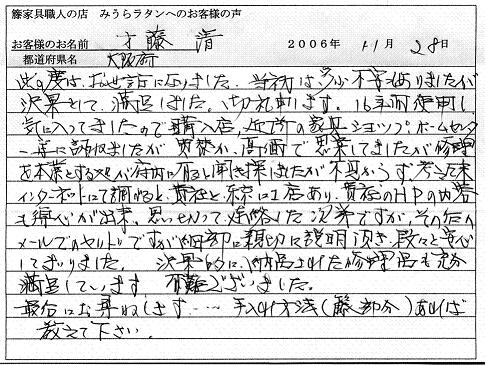 籐家具職人の店 みうらラタンへのお客様の声
お客様のお名前 才藤 清 2006年 11月 28日
都道府県名 大阪府
此の度は、お世話になりました。当初は多少不安もありましたが
決果として、満足しました。御礼申します。16年間使用し
気に入ってましたので購入店、近所の家具ショップ、ホームセンター
等に訪ねましたが 高価で思案してましたが修理
を本業とする 府内に有ると聞き探しましたが不可
インターネットにて調ると、貴社と東京に1店あり、貴店のHPの内容
も得心が出来、思い切って連絡した次第ですが、その后の
メールでのやりとりですが細部に親切に説明頂き、段々と安心
してまいりました。決果的に、納品された修理品も充分
満足しています 有難うございました。
最后にお尋ねします…… 手入れ方法(籐部分)あれば
教えて下さい。